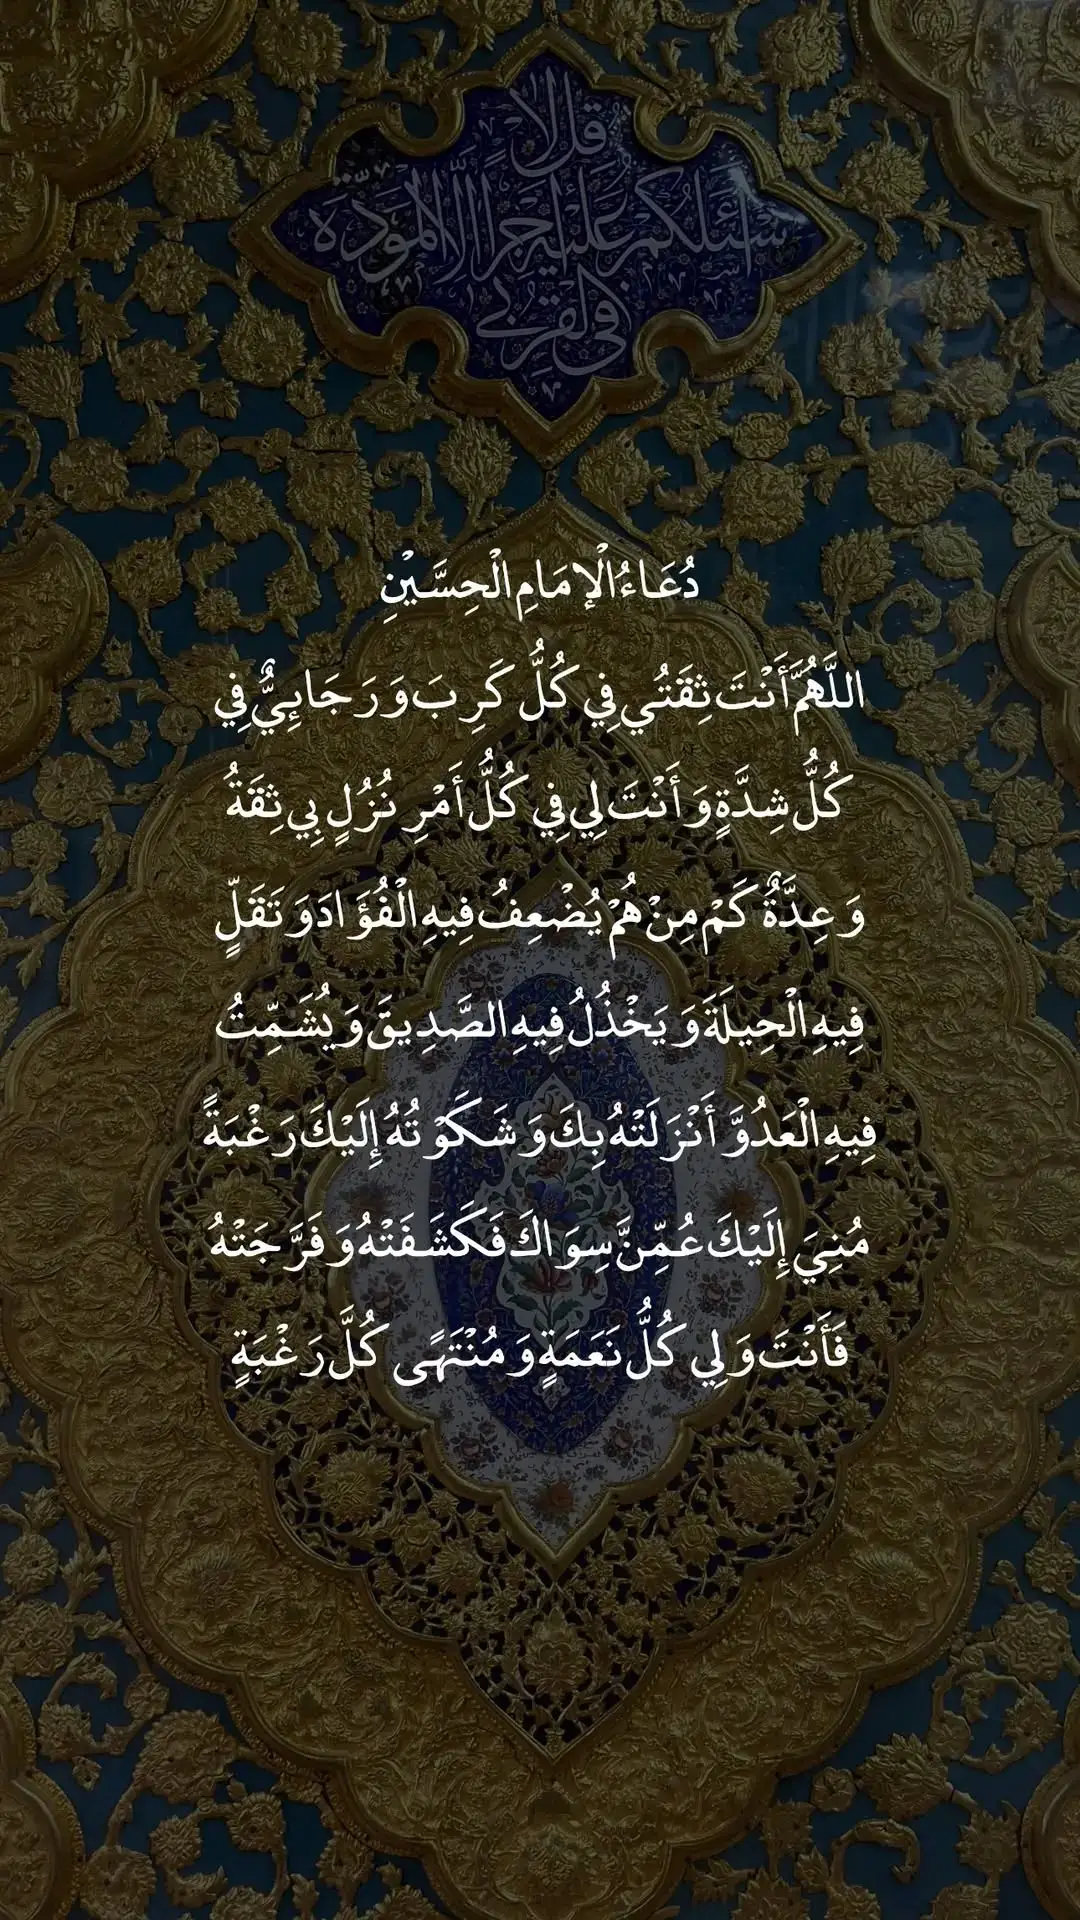 قل لا
أسئلكم عليه أجرا إلا المودة
في القربى
دُعَاءُ الْإِمَامِ الْحِسَّيْنِ
اللَّهُمَّ أَنْتَ ثِقَتُي فِي كُلُّ كَرِبَ وَرَجَائِيٌّ فِي
كُلُّ شِدَّةٍ وَأَنْتَ لِي فِي كُلُّ أَمْرِ نُزُلٍ بِي ثِقَةُ
وَعِدَّةٌ كَمْ مِنْ هُمْ يُضْعِفُ فِيهِ الْفُؤَادَ وَتَقَلٍّ
فِيهِ الْحِيلَةَ وَيَخْذُلُ فِيهِ الصَّدِيقَ وَيُشَمِّتُ
فِيهِ الْعَدُوَّ أَنْزَلَتْهُ بِكَ وَشَكَوْتُهُ إِلَيْكَ رَغْبَةً
مُنِيَ إِلَيْكَ عُمِّنَّ سِوَاكَ فَكَشَفَتْهُ وَفَرَّجَتْهُ
فَأَنْتَ وَلِي كُلُّ نَعَمَةٍ وَمُنْتَهًى كُلَّ رَغْبَةٍ